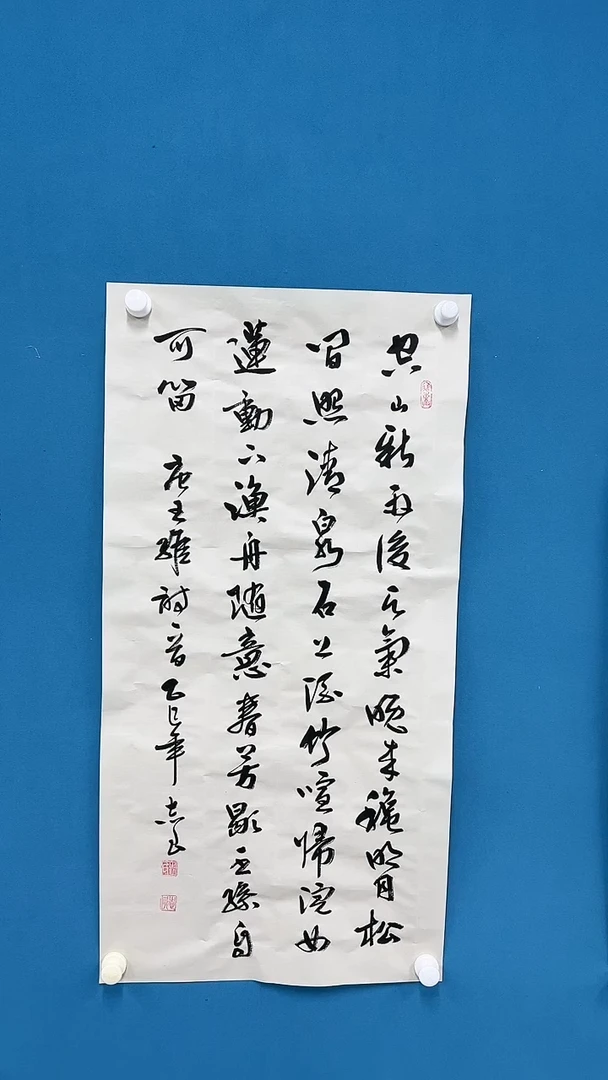 空山新雨後天氣晚来穐明月松
間照清泉石上流竹喧歸浣女
蓮動下漁舟随意春芳歇王孫自
可留 唐王維詩一首乙巳年